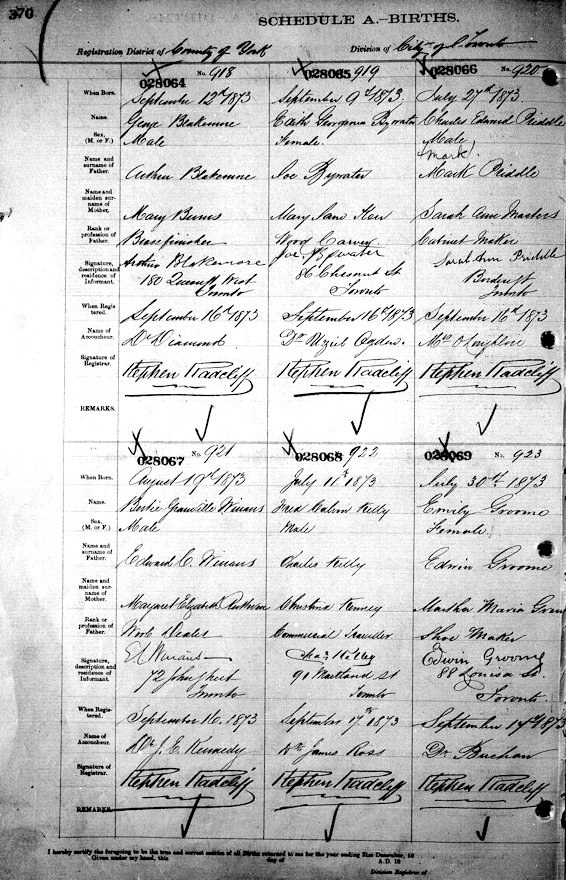 370
SCHEDULE A.—BIRTHS.
Registration District of County of York Division of City of Toronto
No. 918 919 No. 920
028064 028065 028066
When Born. September 12th 1873 September 9th 1873. July 27th 1873
Name. George Blakemore Edith Georgenia Bywater Charles Edward Priddle
Sex, (M. or F.) Male Female. Male
Mark
Name and surname of Father. Arthur Blakemore Joe Bywater Mark Priddle
Name and maiden surname of Mother. Mary Burns Mary Jane Kerr Sarah Ann Masters
Rank or profession of Father. Brassfinisher Wood Carver Cabinet Maker
Signature, description and residence of Informant. Arthur Blakemore Joe. Bywater Sarah Ann Priddle
180 Queen St West 86 Chesnut St
Toronto Toronto Toronto
When Registered. September 16th 1873 September 16th 1873 September 16th 1873
Name of Accoucheur. Dr Diamond Dr Uzziel Ogden. Mrs
Signature of Registrar. Stephen Radcliff Stephen Radcliff Stephen Radcliff
REMARKS.
No. 921 922 No. 923
028067 No. 028068 028069
When Born. August 19th 1873 July 11th 1873 July 30th 1873
Name. Bertie Granville Winans Fred Calvin Kelly Emily Groome
Sex, (M. or F.) Male Male Female
Name and surname of Father. Edward C. Winans Charles Kelly Edwin Groome
Name and maiden surname of Mother. Margaret Elizabeth Christina Martha Maria
Rank or profession of Father. Wool Dealer Commercial Traveller Shoe Maker
Signature, description and residence of Informant. E C Winans Chas Kelley Edwin Groome
72 John Street 90 Maitland St 88 Louisa St.
Toronto Toronto Toronto
When Registered. September 16. 1873 September 17th 1873 September 17th 1873
Name of Accoucheur. Dr. J. E. Kennedy Dr James Ross Dr Buchan
Signature of Registrar. Stephen Radcliff Stephen Radcliff Stephen Radcliff
REMARKS
I hereby certify the foregoing to be the true and correct entries of all Births returned to me for the year ending 31st December, 18
Given under my hand, this day of A.D. 18
Division Registrar of